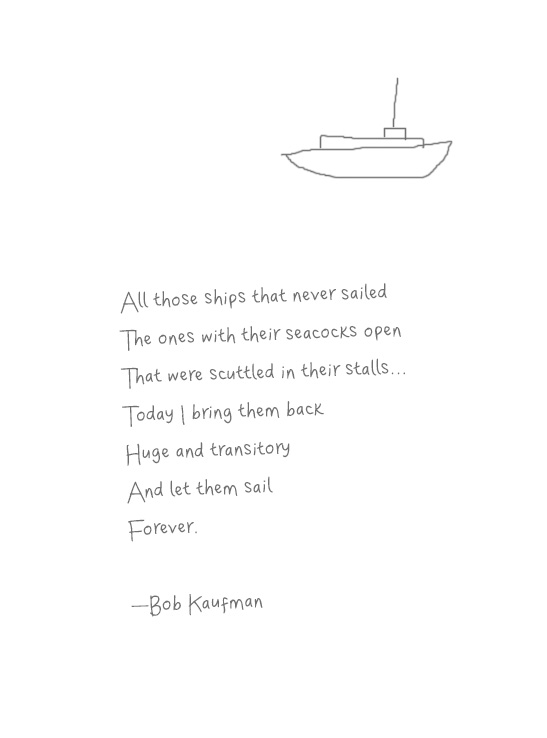 All those ships that never sailed
The ones with their seacocks open
That were scuttled in their stalls...
Today I bring them back
Huge and transitory
And let them sail
Forever.
—Bob Kaufman